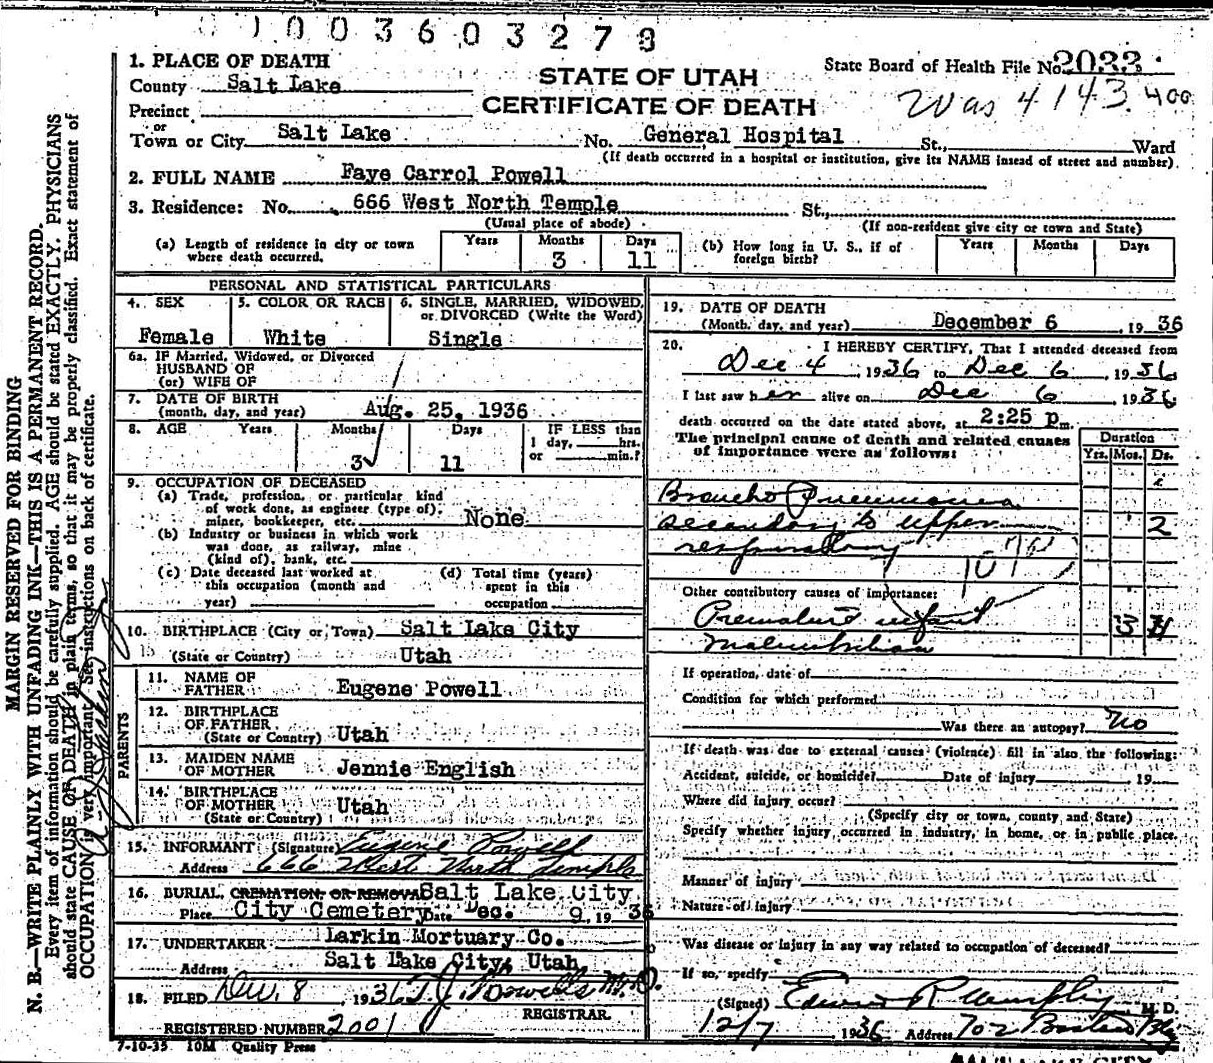 01003603278
1. PLACE OF DEATH
County Salt Lake
Precinct
or
Town or City Salt Lake No. General Hospital St., Ward
(If death occurred in a hospital or institution, give its NAME insead of street and number).
STATE OF UTAH
CERTIFICATE OF DEATH
State Board of Health File No. 2033
Was 4143 400
2. FULL NAME Faye Carrol Powell
3. Residence: No. 666 West North Temple St.,
(Usual place of abode) (If non-resident give city or town and State)
(a) Length of residence in city or town where death occurred. Years Months 3 Days 11
(b) How long in U. S., if of foreign birth? Years Months Days
PERSONAL AND STATISTICAL PARTICULARS
4. SEX Female
5. COLOR OR RACE White
6. SINGLE, MARRIED, WIDOWED, or DIVORCED (Write the Word) Single
6a. IF Married, Widowed, or Divorced
HUSBAND OF
(or) WIFE OF
7. DATE OF BIRTH
(month, day, and year) Aug. 25, 1936
8. AGE Years Months 3 Days 11 IF LESS than
1 day, hrs.
or min.?
9. OCCUPATION OF DECEASED
(a) Trade, profession, or particular kind
of work done, as engineer (type of),
miner, bookkeeper, etc. None
(b) Industry or business in which work
was done, as railway, mine
(kind of), bank, etc.
(c) Date deceased last worked at
this occupation (month and
year)
(d) Total time (years)
spent in this
occupation
10. BIRTHPLACE (City or Town) Salt Lake City
(State or Country) Utah
PARENTS
11. NAME OF
FATHER Eugene Powell
12. BIRTHPLACE
OF FATHER
(State or Country) Utah
13. MAIDEN NAME
OF MOTHER Jennie English
14. BIRTHPLACE
OF MOTHER
(State or Country) Utah
15. INFORMANT (Signature) Eugene Powell
Address 666 West North Temple
16. BURIAL, CREMATION, OR REMOVAL Salt Lake City
Place City Cemetery Date Dec. 9, 1936
17. UNDERTAKER Larkin Mortuary Co.
Address Salt Lake City, Utah
18. FILED Dec. 8, 1936 T. J. Howells M.D.
REGISTRAR.
REGISTERED NUMBER 2001
7-10-35 10M Quality Press
19. DATE OF DEATH
(Month, day, and year) December 6, 1936
20. I HEREBY CERTIFY, That I attended deceased from
Dec 4, 1936 to Dec 6, 1936
I last saw her alive on Dec 6, 1936
death occurred on the date stated above, at 2:25 p.m.
The principal cause of death and related causes
of importance were as follows:
Duration
Yrs. Mos. Ds.
Broncho Pneumonia
secondary to upper 2
respiratory
107a
Other contributory causes of importance:
Premature infant 3 11
Malnutrition
If operation, date of
Condition for which performed
Was there an autopsy? No
If death was due to external causes (violence) fill in also the following:
Accident, suicide, or homicide? Date of injury 19
Where did injury occur?
(Specify city or town, county and State)
Specify whether injury occurred in industry, in home, or in public place.
Manner of injury
Nature of injury
Was disease or injury in any way related to occupation of deceased?
If so, specify
(Signed) Edwin R Murphy M.D.
12/7 1936 Address 702 Boston Bldg
MARGIN RESERVED FOR BINDING
N. B.—WRITE PLAINLY WITH UNFADING INK—THIS IS A PERMANENT RECORD.
Every item of information should be carefully supplied. AGE should be stated EXACTLY. PHYSICIANS
should state CAUSE OF DEATH in plain terms, so that it may be properly classified. Exact statement of
OCCUPATION is very important. See instructions on back of certificate.